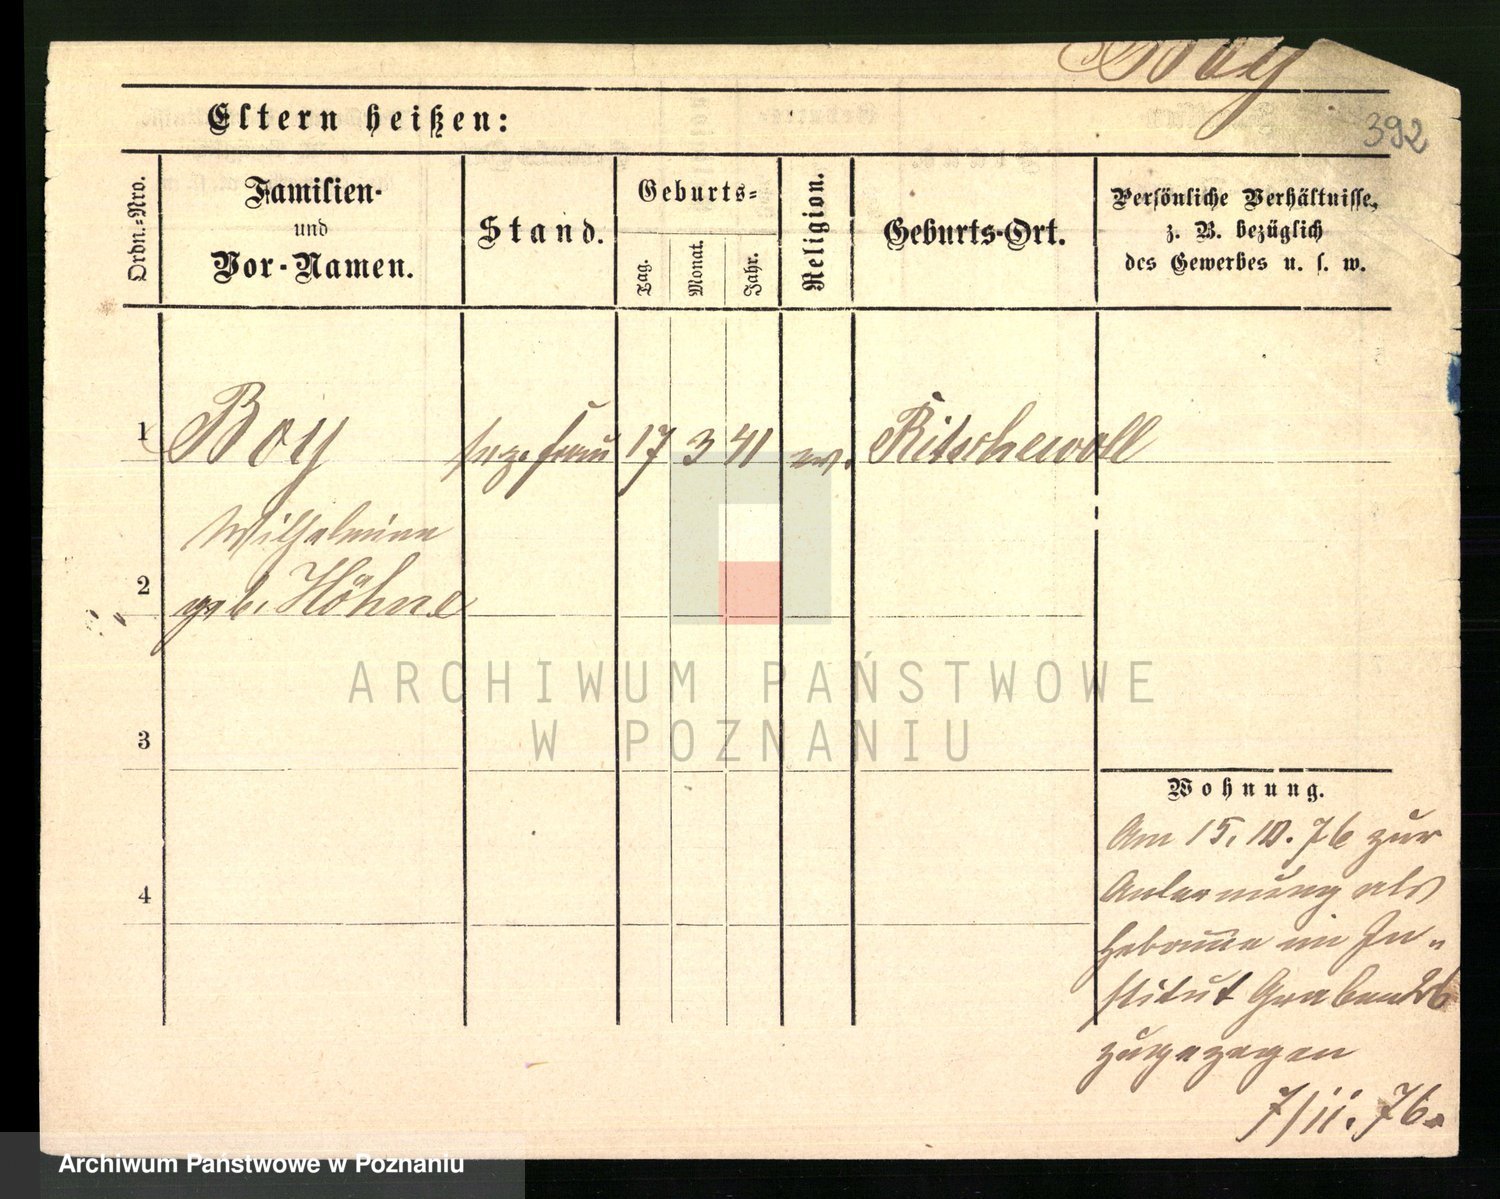 Boy
Eltern heißen:
392
Ordn.-Nro.
Familien-
und
Vor-Namen.
Stand.
Geburts-
Tag.
Monat.
Jahr.
Religion.
Geburts-Ort.
Persönliche Verhältnisse,
z. B. bezüglich
des Gewerbes u. s. w.
1 Boy Frau 17 3 41 ev. Ritschewoll
Wilhelmine
2 geb. Höhne
3
4
Wohnung.
Am 15. 10. 76 zur
Anlernung als
Hebamme im In-
stitut Graben 26
zugezogen
7/11. 76.
ARCHIWUM PAŃSTWOWE
W POZNANIU
Archiwum Państwowe w Poznaniu